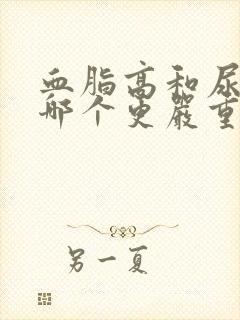 血脂高和尿
哪个更严重
另一夏